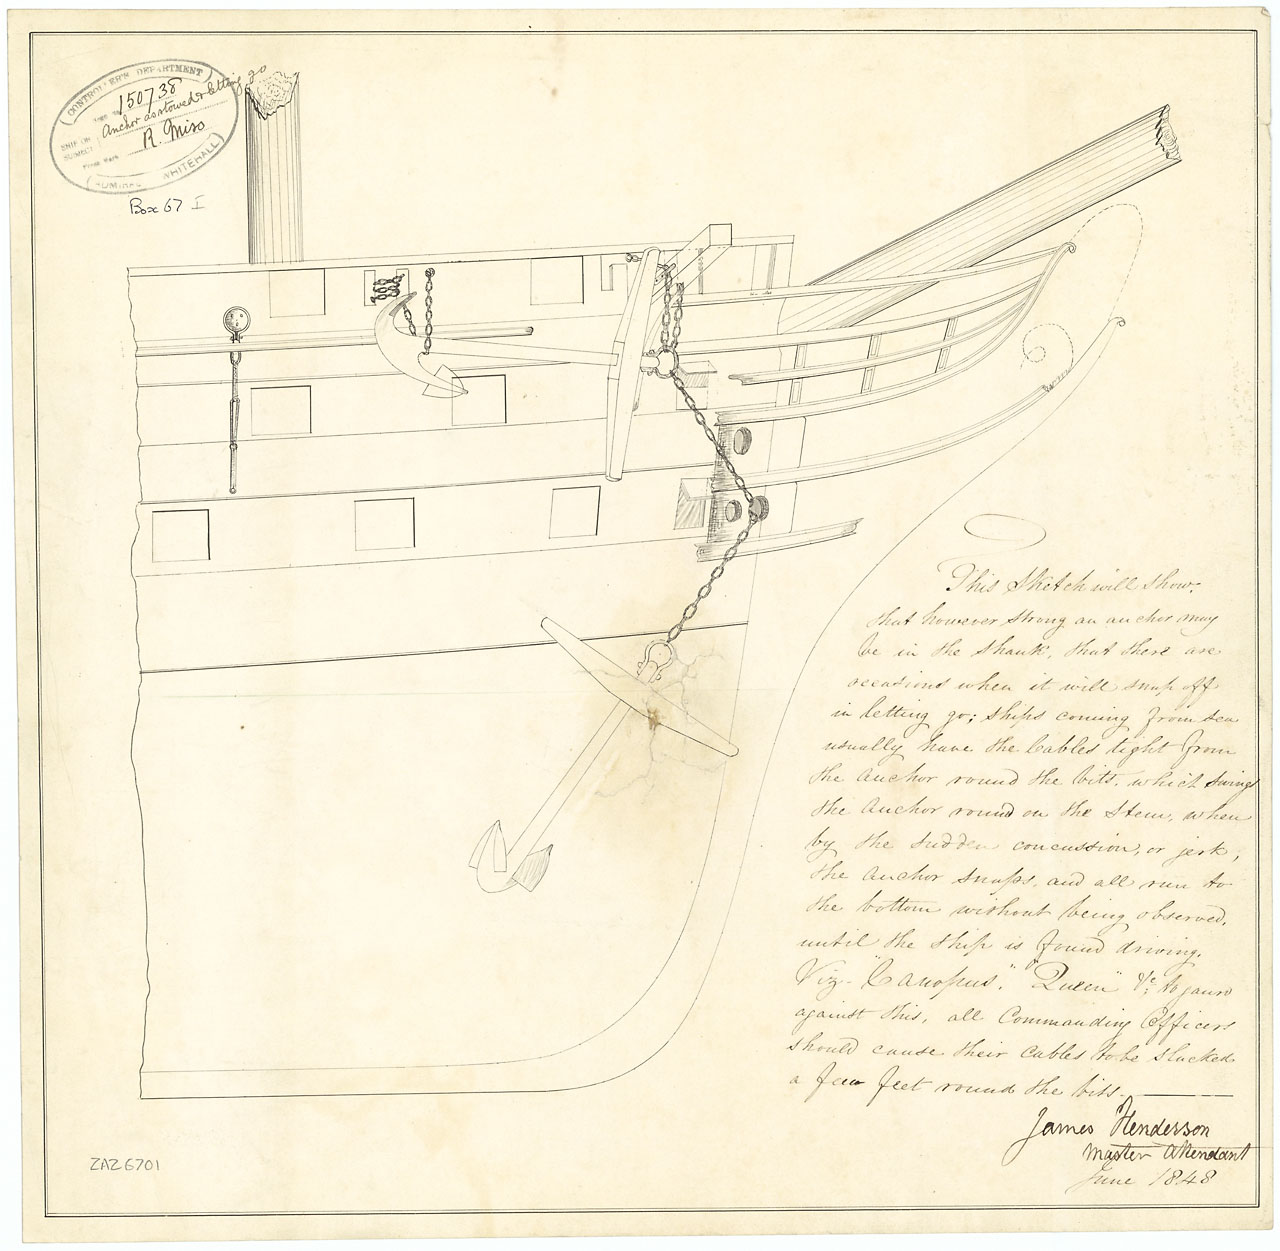 CONTROLLER'S DEPARTMENT
150738
SHIP OR SUBJECT
Anchor as stowed & letting go
From Mark
R. Miso
ADMIRAL WHITEHALL
Box 67 I
This Sketch will show,
that however strong an anchor may
be in the shank, that there are
occasions when it will snap off
in letting go; ships coming from sea
usually have the Cables tight from
the anchor round the bits, which swings
the Anchor round on the Stem, when
by the sudden concussion, or jerk,
the anchor snaps, and all run to
the bottom without being observed,
until the ship is found driving.
Viz- "Canopus," "Queen" &c: to gaurd
against this, all Commanding Officers
should cause their cables to be slacked
a few feet round the bits.
James Henderson
Master Attendant
June 1848
ZAZ6701